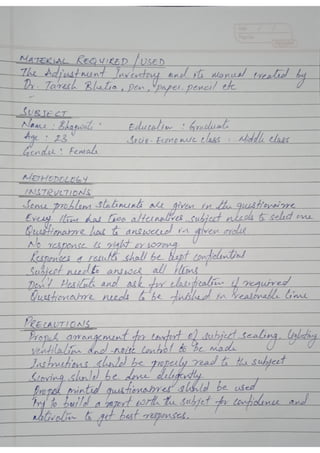 MATERIAL REQUIRED / USED
The Adjustment Inventory and its manual created by
Dr. Taresh Bhatia, pen, paper, pencil etc
SUBJECT
Name : Bhagwati Education : Graduate
Age : 23 Socio-Economic class : Middle class
Gender : Female
METHODOLOGY
INSTRUCTIONS
Some problem statements are given in the questionairre
Every item has two alternatives. subject needs to select one
Questionairre has to answered in given order
No response is right or wrong
Responses & results shall be kept confidential
Subject needs to answer all items
Don't Hesitate and ask for clarification if required
Questionairre needs to be finished in reasonable time
PRECAUTIONS
Proper arrangement for comfort of subject seating, lighting
ventilation and noise control to be made
Instructions should be properly read to the subject
Scoring should be done diligently.
Proper printed questionairres should be used
Try to build a raport with the subject for confidence and
Motivation to get best responses.